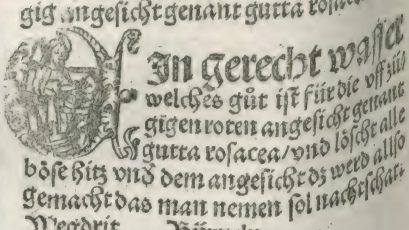 gig angesicht genant gutta rosacea
EJn gerecht wasser
welches gůt ist für die vff zů
gigen roten angesicht genant
gutta rosacea/ vnd löscht alle
böse hitz vnd dem angesicht dz werd allso
gemacht das man nemen sol nachtschat⸗
Wegdrit